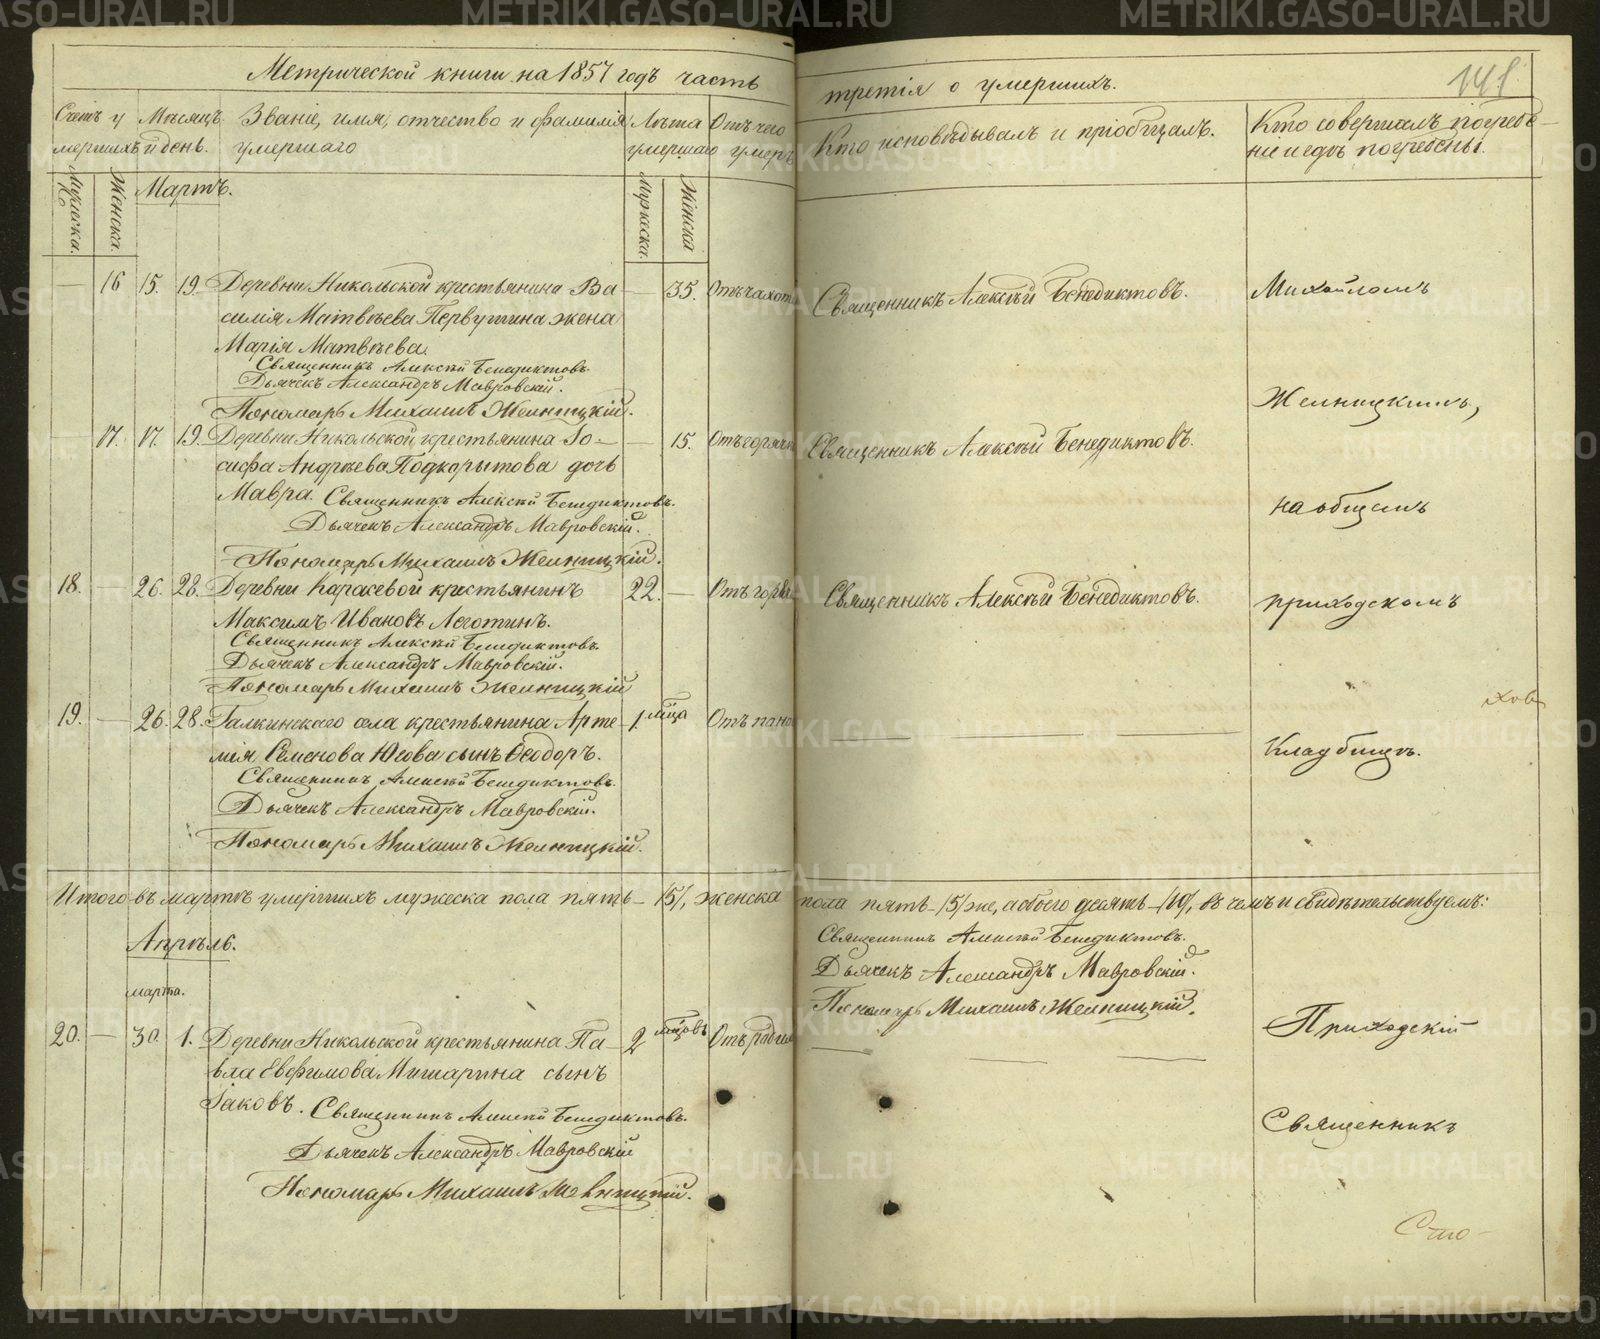 Метрической книги на 1857 годъ часть
третія о умершихъ.
141
Счетъ у
мершихъ
Мѣсяцъ
и день.
Званіе, имя, отчество и фамилія
умершаго
Лѣта
умершаго
Отъ чего
умеръ
Кто исповѣдывалъ и пріобщалъ.
Кто совершалъ погребе-
ніе и гдѣ погребены.
Мужеска.
Женска.
Мартъ.
Мужеска.
Женска
— 16 15. 19. Деревни Никольской крестьянина Ва — 35. Отъ чахот
силія Матвѣева Первушина жена
Марія Матвѣева.
Священникъ Алексѣй Бенедиктовъ.
Дьячекъ Александръ Мавровскій.
Пономарь Михаилъ Желницкій.
Священникъ Алексѣй Бенедиктовъ.
Михаиломъ
— 17. 17. 19. Деревни Никольской крестьянина Іо- — 15. Отъ горячк
сифа Андреева Подкорытова дочь
Мавра. Священникъ Алексѣй Бенедиктовъ.
Дьячекъ Александръ Мавровскій.
Пономарь Михаилъ Желницкій.
Священникъ Алексѣй Бенедиктовъ.
Желницкимъ,
на общемъ
18. — 26. 28. Деревни Карасевой крестьянинъ 22. — Отъ горя
Максимъ Ивановъ Леготинъ.
Священникъ Алексѣй Бенедиктовъ.
Дьячекъ Александръ Мавровскій.
Пономарь Михаилъ Желницкій
Священникъ Алексѣй Бенедиктовъ.
приходскомъ
19. — 26. 28. Галкинскаго села крестьянина Арте- 1. мѣца Отъ
мія Семенова Юсова сынъ Ѳеодоръ.
Священникъ Алексѣй Бенедиктовъ.
Дьячекъ Александръ Мавровскій.
Пономарь Михаилъ Желницкій.
хов
кладбищѣ.
Итого въ мартѣ умершихъ мужеска пола пять — /5/, женска
пола пять — /5/ же, а обоего десять — /10/, въ чемъ и свидѣтельствуемъ:
Священникъ Алексѣй Бенедиктовъ.
Дьячекъ Александръ Мавровскій.
Пономарь Михаилъ Желницкій.
Апрѣль.
марта.
20. — 30. 1. Деревни Никольской крестьянина Па- 2 мѣцовъ Отъ
вла Евфимова Мишарина сынъ
Іаковъ. Священникъ Алексѣй Бенедиктовъ.
Дьячекъ Александръ Мавровскій
Пономарь Михаилъ Желницкій.
Приходскій
Священникъ
Сто-
METRIKI.GASO-URAL.RU